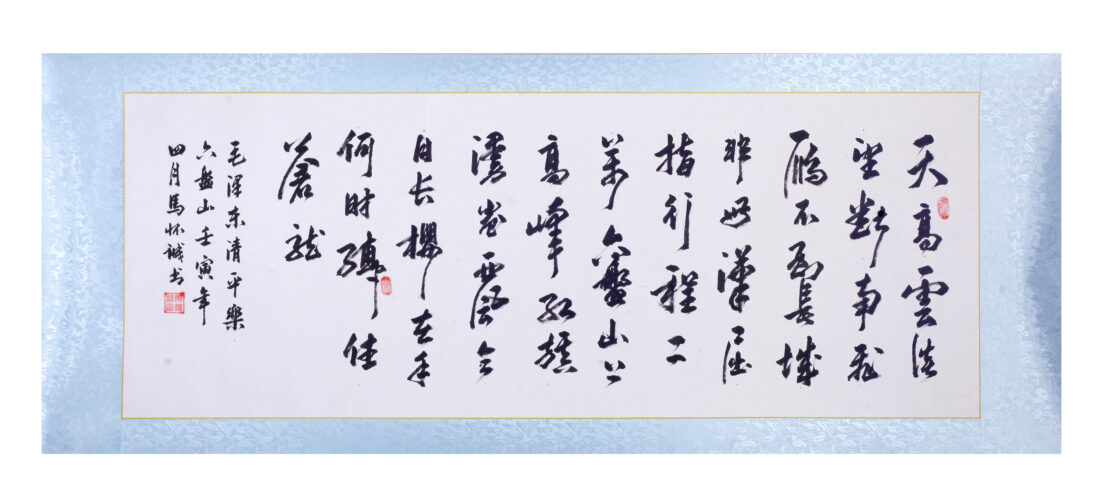 天高雲淡
望斷南飛
鴈不到長城
非好漢屈
指行程二
萬六盤山上
高峰紅旗
漫卷西風今
日长纓在手
何时縛住
蒼龍
毛澤东清平樂
六盤山壬寅年
四月馬怀誠书